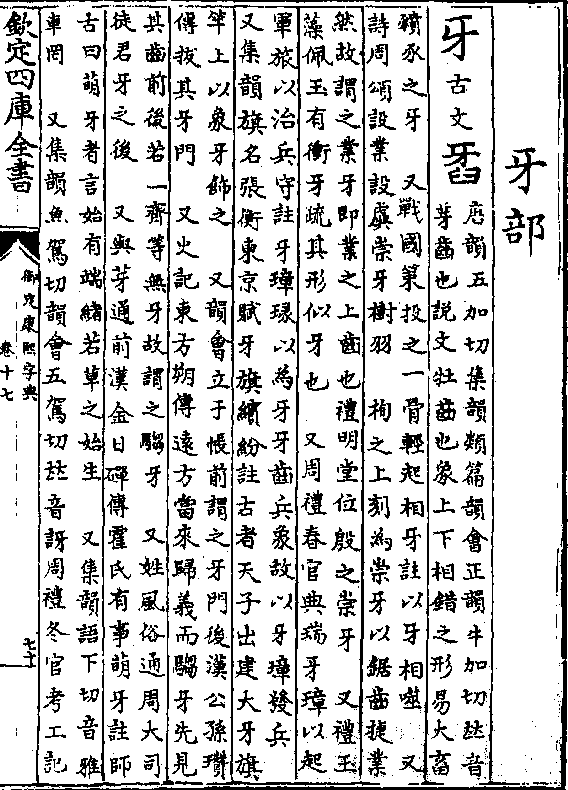 牙部
牙古文𤘈
唐韻五加切集韻類篇韻會正韻牛加切𠀤音
芽齒也說文牡齒也象上下相錯之形易大畜
豶豕之牙　又戰國策投之一骨輕起相牙註以牙相噬　又
詩周頌設業設虡崇牙樹羽　栒之上刻為崇牙以鋸齒捷業
然故謂之業牙即業之上齒也禮明堂位殷之崇牙　又禮玉
藻佩玉有衝牙疏其形似牙也　又周禮春官典瑞牙璋以起
軍旅以治兵守註牙璋瑑以為牙牙齒兵象故以牙璋發兵
又集韻旗名張衡東京賦牙旗繽紛註古者天子出建大牙旗
竿上以象牙飾之　又韻會立于帳前謂之牙門後漢公孫瓚
傳拔其牙門　又史記東方朔傳遠方當來歸義而騶牙先見
其齒前後若一齊等無牙故謂之騶牙　又姓風俗通周大司
徒君牙之後　又與芽通前漢金日磾傳霍氏有事萌牙註師
古曰萌牙者言始有端緒若草之始生　又集韻語下切音雅
車罔　又集韻魚駕切韻會五駕切𠀤音訝周禮冬官考工記
欽定四庫全書
御定康熙字典
卷十七
七十